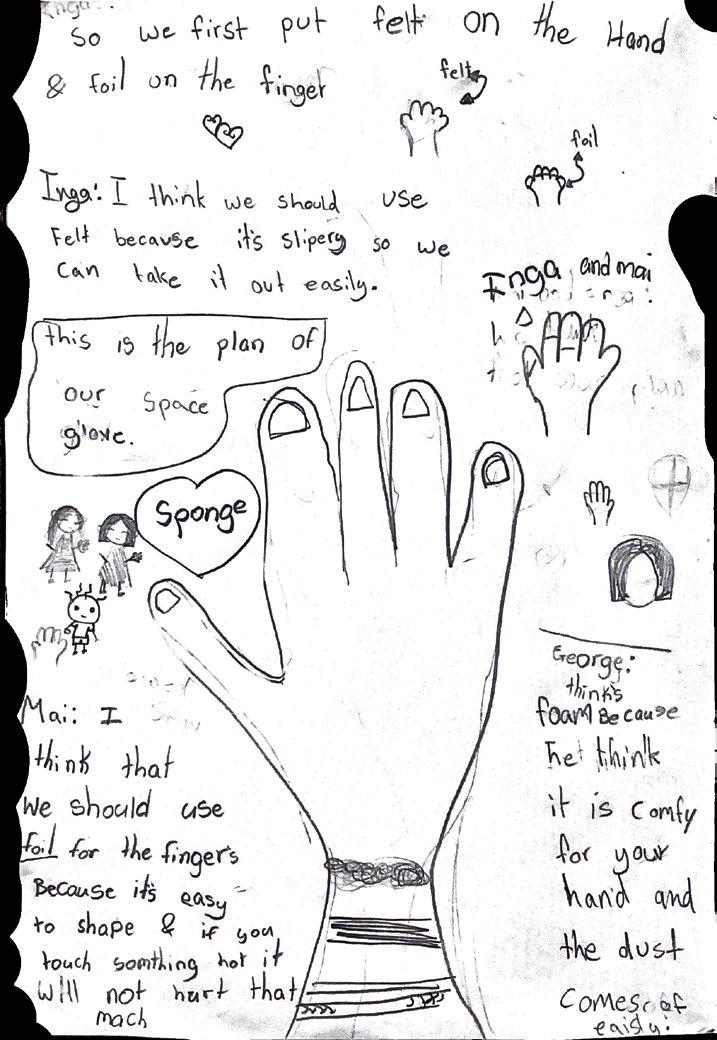 Inga:
So we first put felt on the Hand
& foil on the finger
felt
foil
Inga: I think we should use
Felt because it's slipery so we
Can take it out easily.
Inga and mai
this is the plan of
our space
glove.
Sponge
Mai: I
think that
we should use
foil for the fingers
Because it's easy
to shape & if you
touch somthing hot it
will not hurt that
mach
George:
thinks
foam Because
he think
it is comfy
for your
hand and
the dust
Comes of
eaisly!